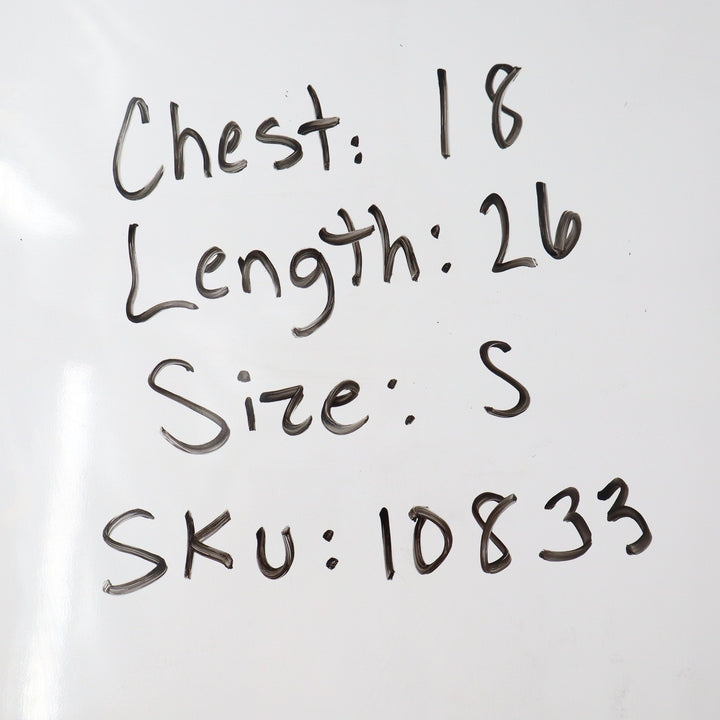 Chest: 18
Length: 26
Size: S
SKU: 10833